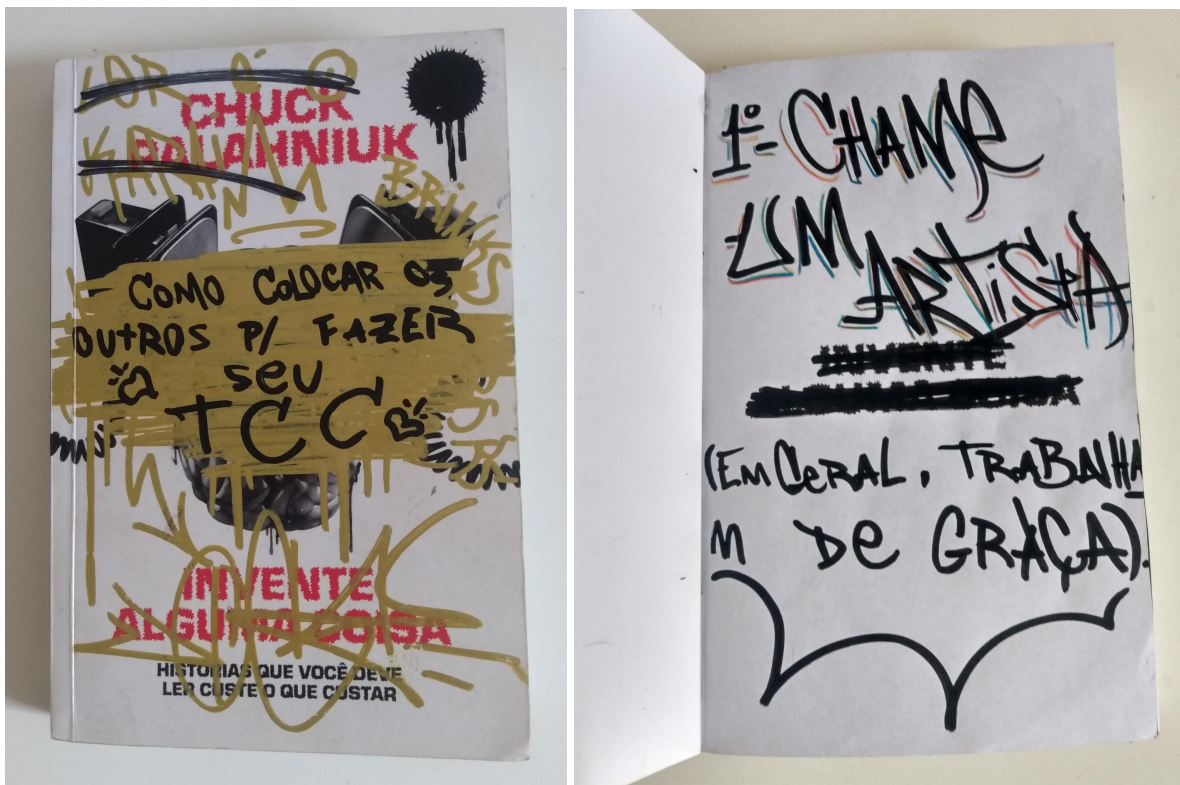 POR É O
KARMA
CHUCK
PALAHNIUK
BRINKS
COMO COLOCAR OS
OUTROS P/ FAZER
SEU
TCC
INVENTE
ALGUMA COISA
HISTÓRIAS QUE VOCÊ DEVE
LER CUSTE O QUE CUSTAR
1º- CHAME
UM
ARTISTA
INVENTE
(EM GERAL, TRABALHA
M DE GRAÇA).